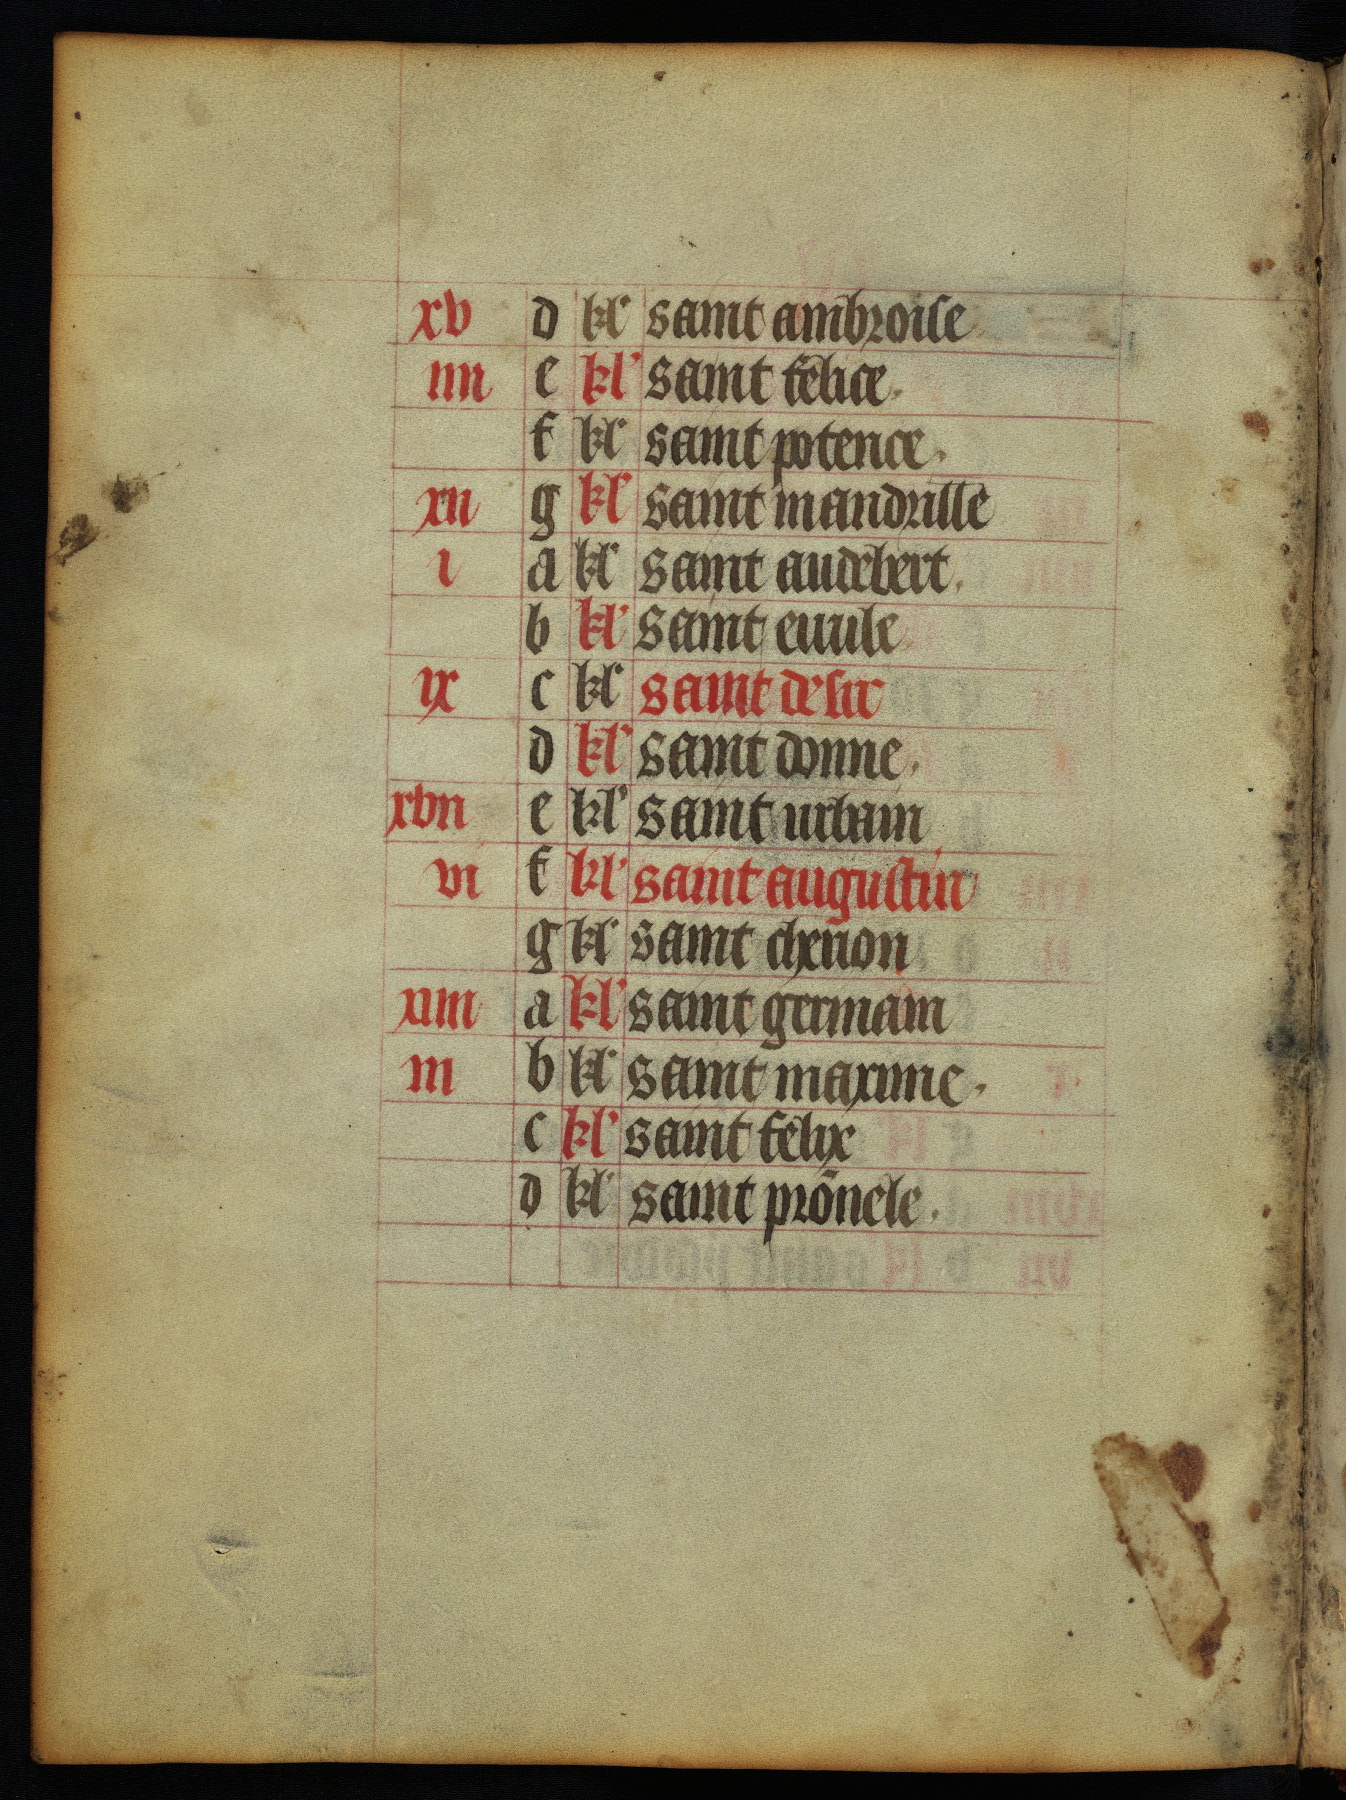 xv d kl' saint ambroise
iiii e kl' saint felice.
f kl' saint potence.
xii g kl' saint mandrille
i a kl' saint audebert.
b kl' saint euule
ix c kl' saint desir
d kl' saint donne.
xvii e kl' saint urbain
vi f kl' saint augustin
g kl' saint chenon
xiiii a kl' saint germain
iii b kl' saint maxime.
c kl' saint felix
d kl' saint prōnele.